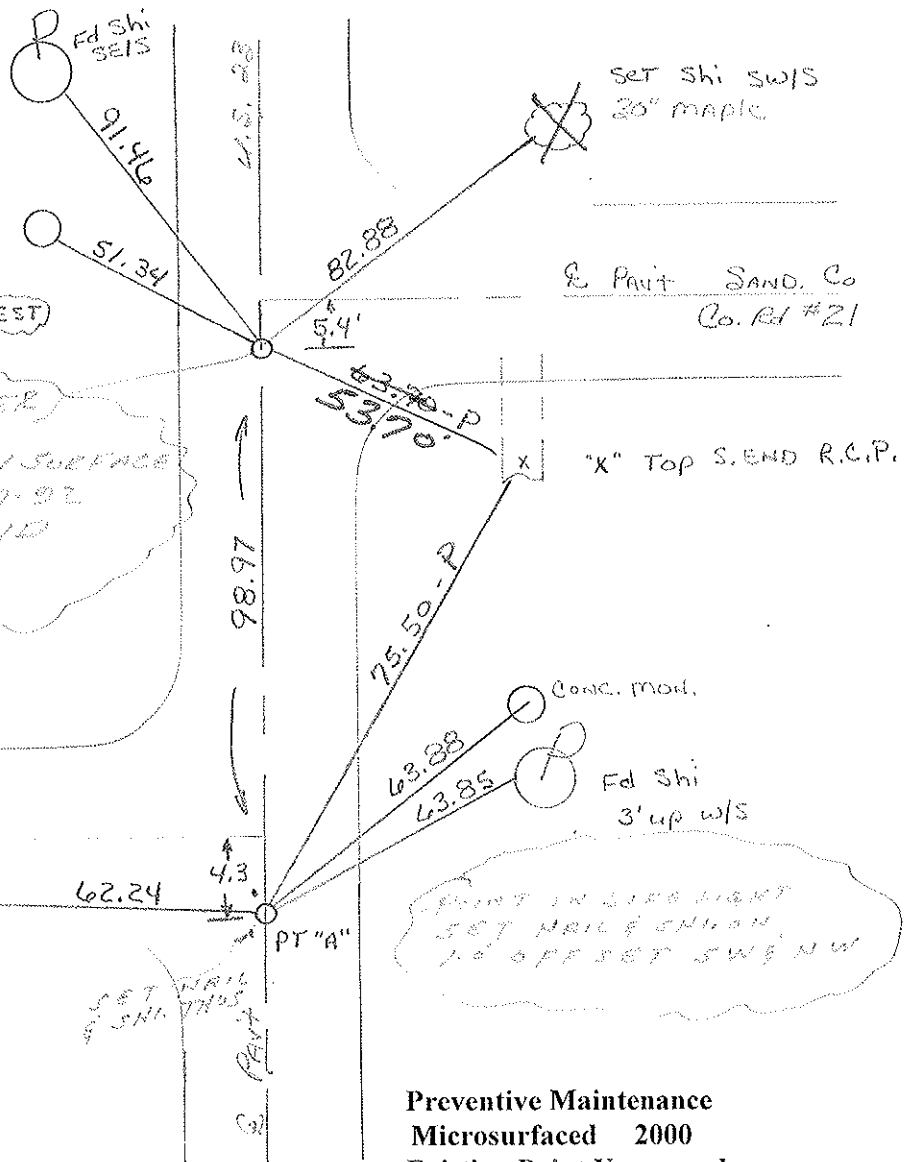 P
Fd Shi
SE/S
U.S. 23
SET Shi SW/S
20" MAPLE
91.46
51.34
82.88
5.4'
℄ PAV't SAND. Co
Co. Rd #21
EST)
63.70 - P
53.70'
"X" TOP S. END R.C.P.
X
SURFACE
98.97
75.50 - P
CONC. MON.
63.88
63.85
P
Fd Shi
3' up W/S
4.3'
62.24
PT "A"
SET NAIL
& SHI. THUS
POINT IN
SET NAIL & SHI. ON
1.0 OFFSET SW & NW
℄ PAV't
Preventive Maintenance
Microsurfaced 2000